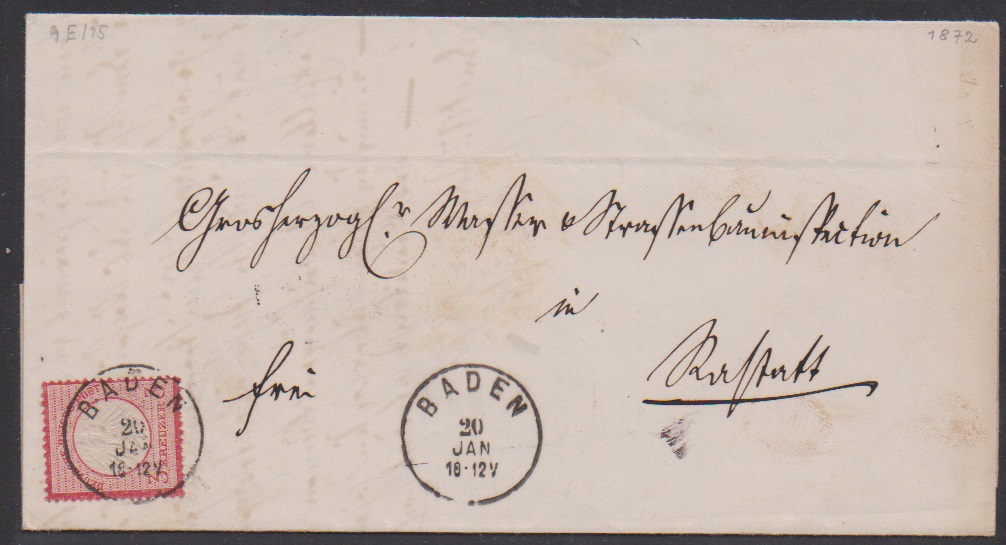 9 E/15
1872
Grosherzogl.r Wasser & Strassenbauinspection
in
Rastatt
frei
BADEN
20
JAN
10-12V
BADEN
20
JAN
10-12V
KREUZER